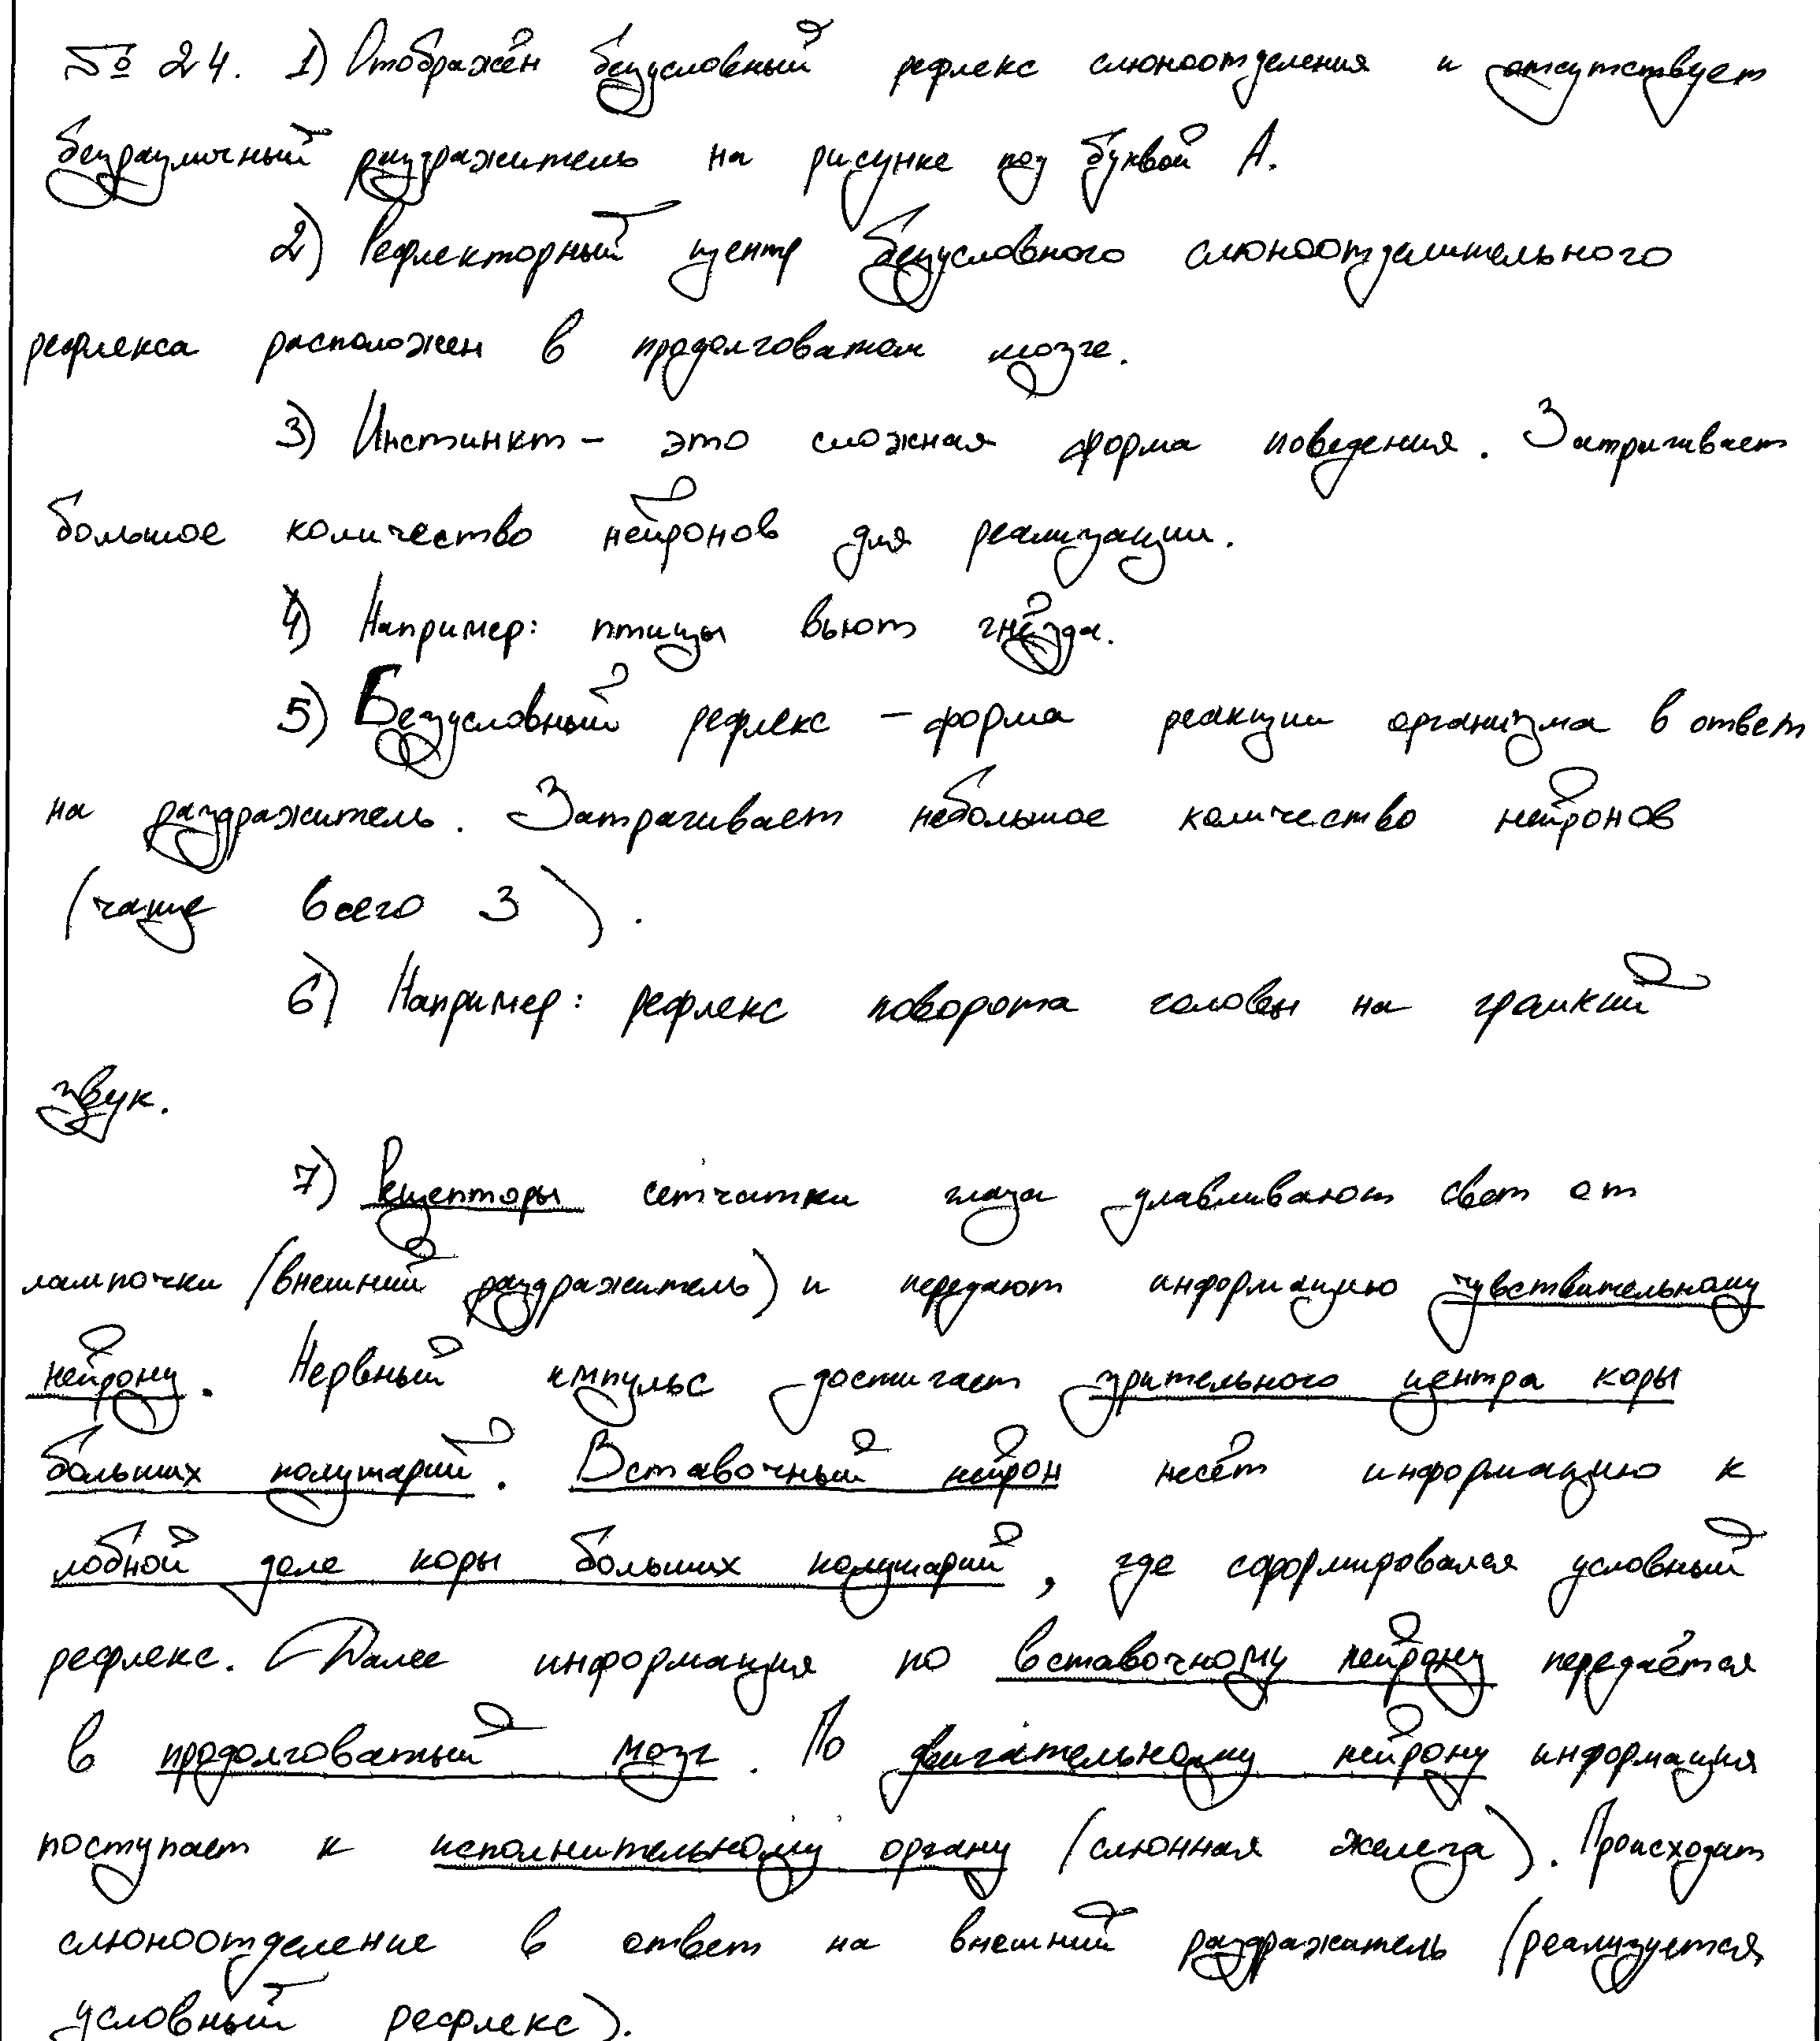 № 24. 1) Отображён безусловный рефлекс слюноотделения и отсутствует
безразличный раздражитель на рисунке под буквой А.
2) Рефлекторный центр безусловного слюноотделительного
рефлекса расположен в продолговатом мозге.
3) Инстинкт – это сложная форма поведения. Затрагивает
большое количество нейронов для реализации.
4) Например: птицы вьют гнёзда.
5) Безусловный рефлекс – форма реакции организма в ответ
на раздражитель. Затрагивает небольшое количество нейронов
(чаще всего 3).
6) Например: рефлекс поворота головы на громкий
звук.
7) Рецепторы сетчатки глаза улавливают свет от
лампочки (внешний раздражитель) и передают информацию чувствительному
нейрону. Нервный импульс достигает зрительного центра коры
больших полушарий. Вставочный нейрон несёт информацию к
лобной доле коры больших полушарий, где сформировался условный
рефлекс. Далее информация по вставочному нейрону передаётся
в продолговатый мозг. По двигательному нейрону информация
поступает к исполнительному органу (слюнная железа). Происходит
слюноотделение в ответ на внешний раздражитель (реализуется
условный рефлекс).